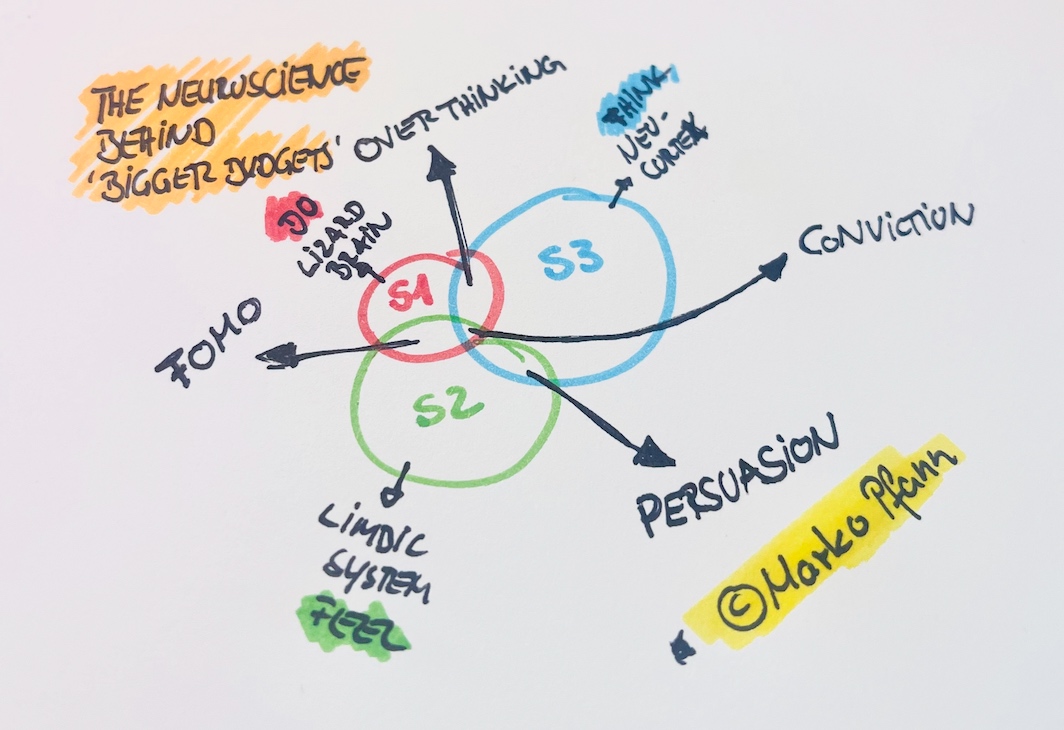 THE NEUROSCIENCE
BEHIND
'BIGGER BUDGETS'
OVERTHINKING
THINK
NEU-
CORTEX
DO
LIZARD
BRAIN
S1
S3
CONVICTION
FOMO
S2
PERSUASION
LIMBIC
SYSTEM
FEEL
© Marko Pfann